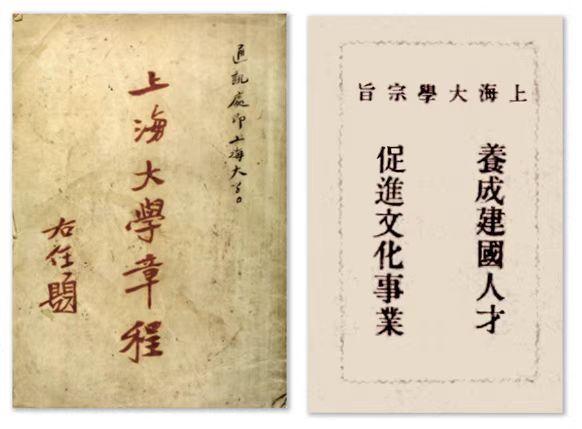 通訊處即上海大学。
上海大學章程
右任題
上海大學宗旨
養成建國人才
促進文化事業